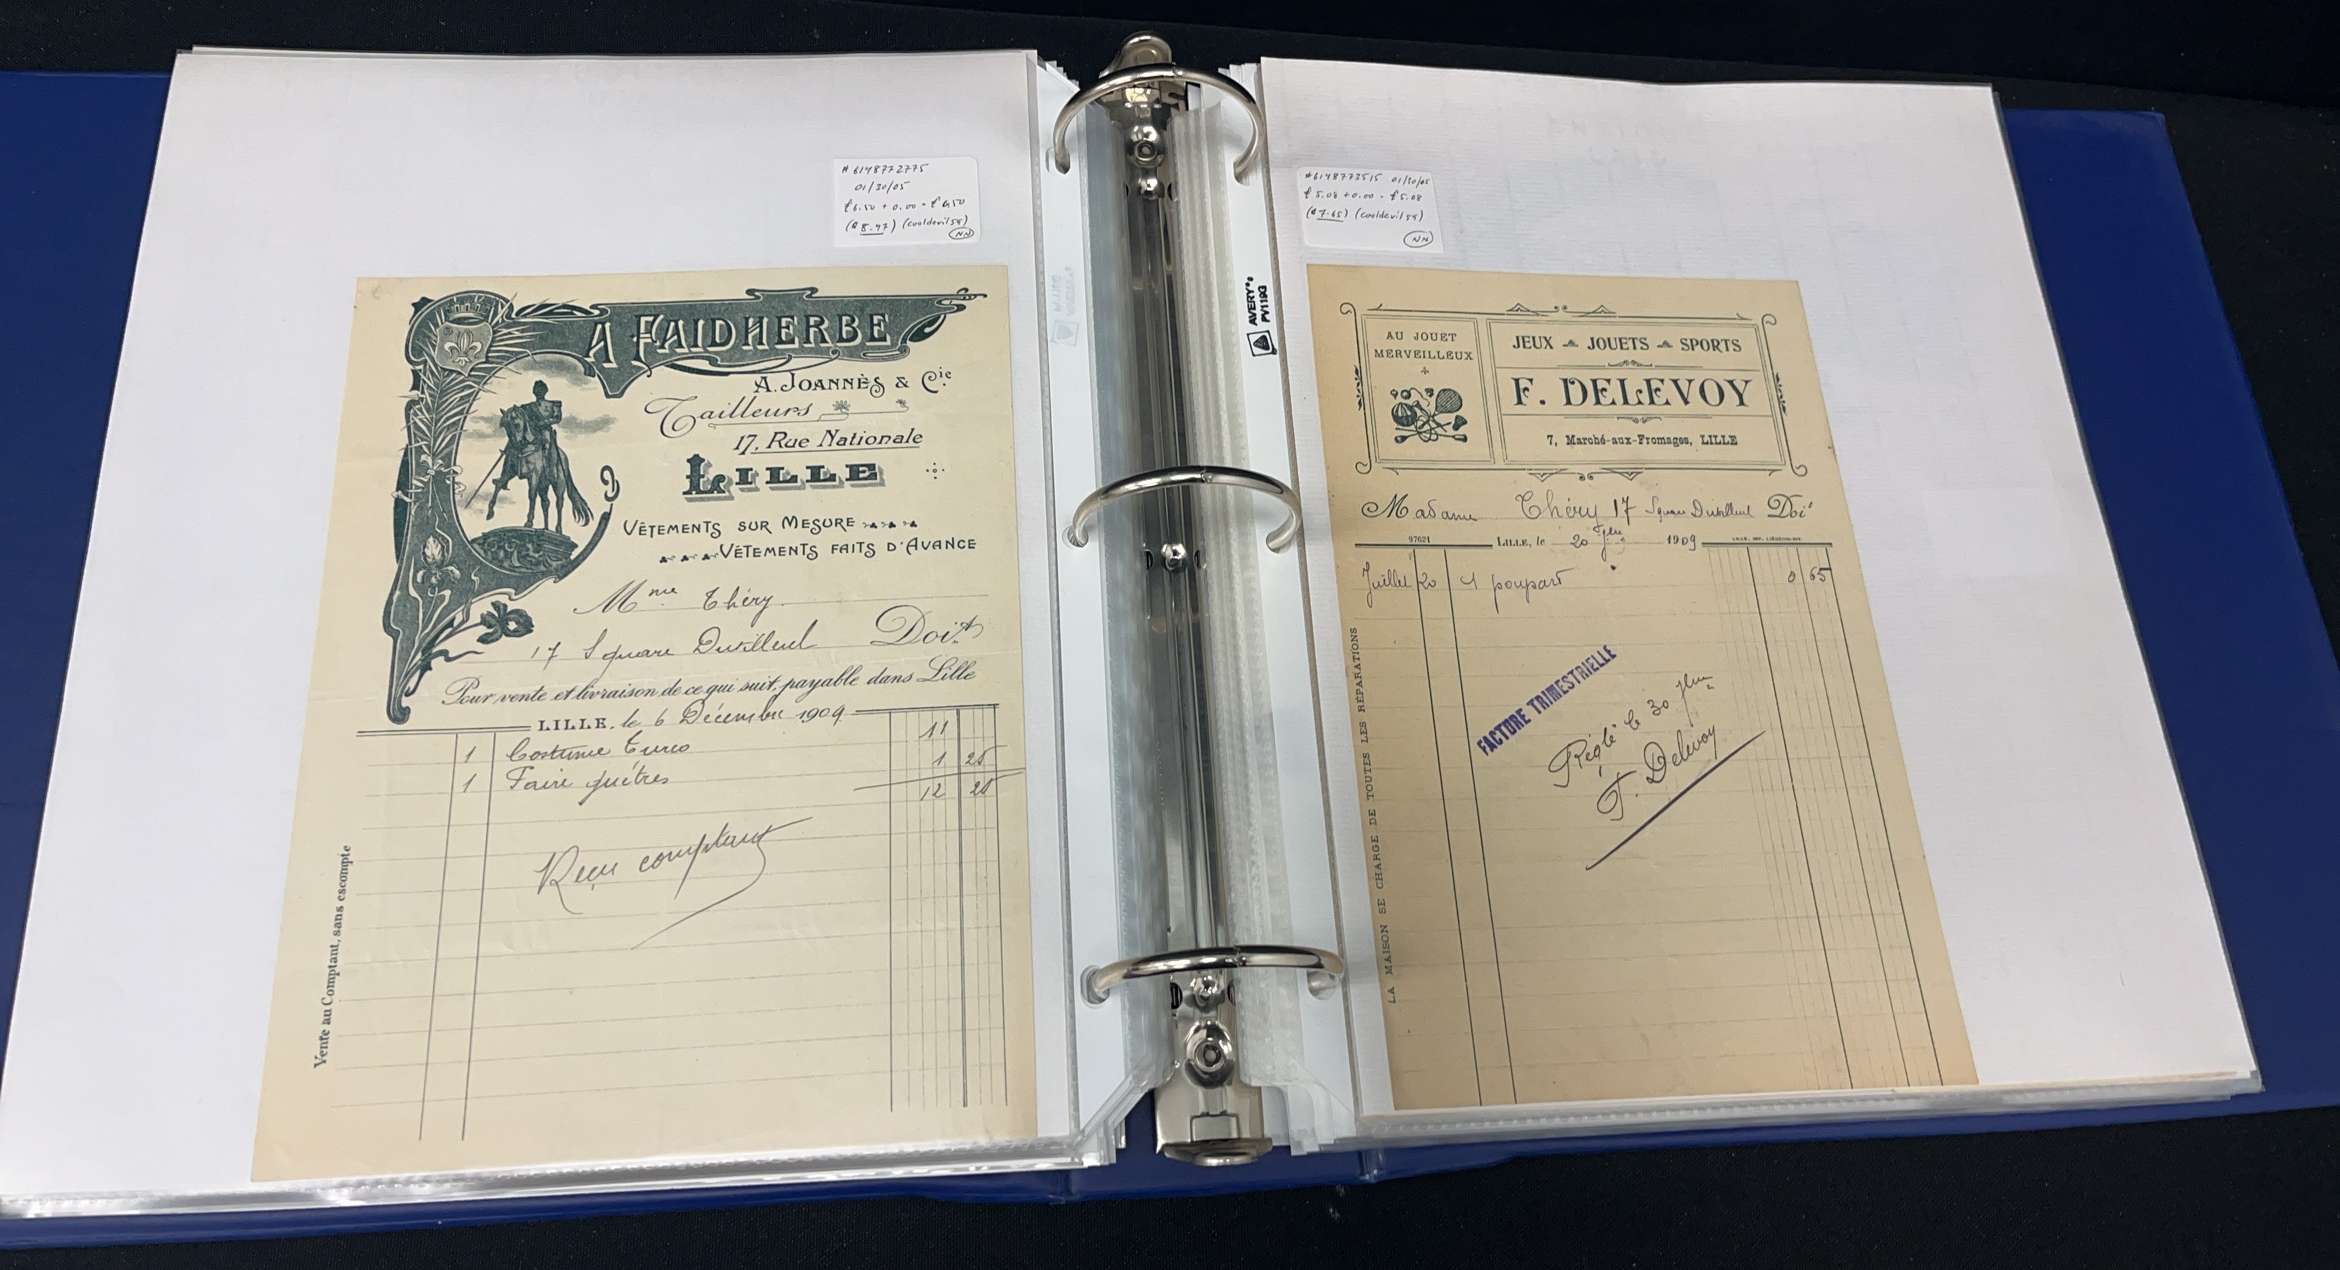 # 6148772775
01/30/05
£6.50 + 0.00 = £6.50
($8.47) (cooldevil59)
NN
A FAIDHERBE
A. JOANNÈS & Cie
Tailleurs
17, Rue Nationale
LILLE
VÊTEMENTS SUR MESURE
VÊTEMENTS FAITS D'AVANCE
Mme Théry
17 Square Dutilleul Doit
Pour vente et livraison de ce qui suit, payable dans Lille
LILLE, le 6 Décembre 1909
1 Costume Turco 11
1 Faire guêtres 1 25
12 25
Reçu comptant
Vente au Comptant, sans escompte
AVERY®
PV119G
#6148773515 01/30/05
£5.08 + 0.00 = £5.08
($7.65) (cooldevil59)
NN
AU JOUET
MERVEILLEUX
JEUX JOUETS SPORTS
F. DELEVOY
7, Marché-aux-Fromages, LILLE
Madame Théry 17 Square Dutilleul Doit
97621 LILLE, le 20 1909
Juillet 20 1 poupart 0 65
FACTURE TRIMESTRIELLE
Réglé le 30
F. Delevoy
LA MAISON SE CHARGE DE TOUTES LES RÉPARATIONS